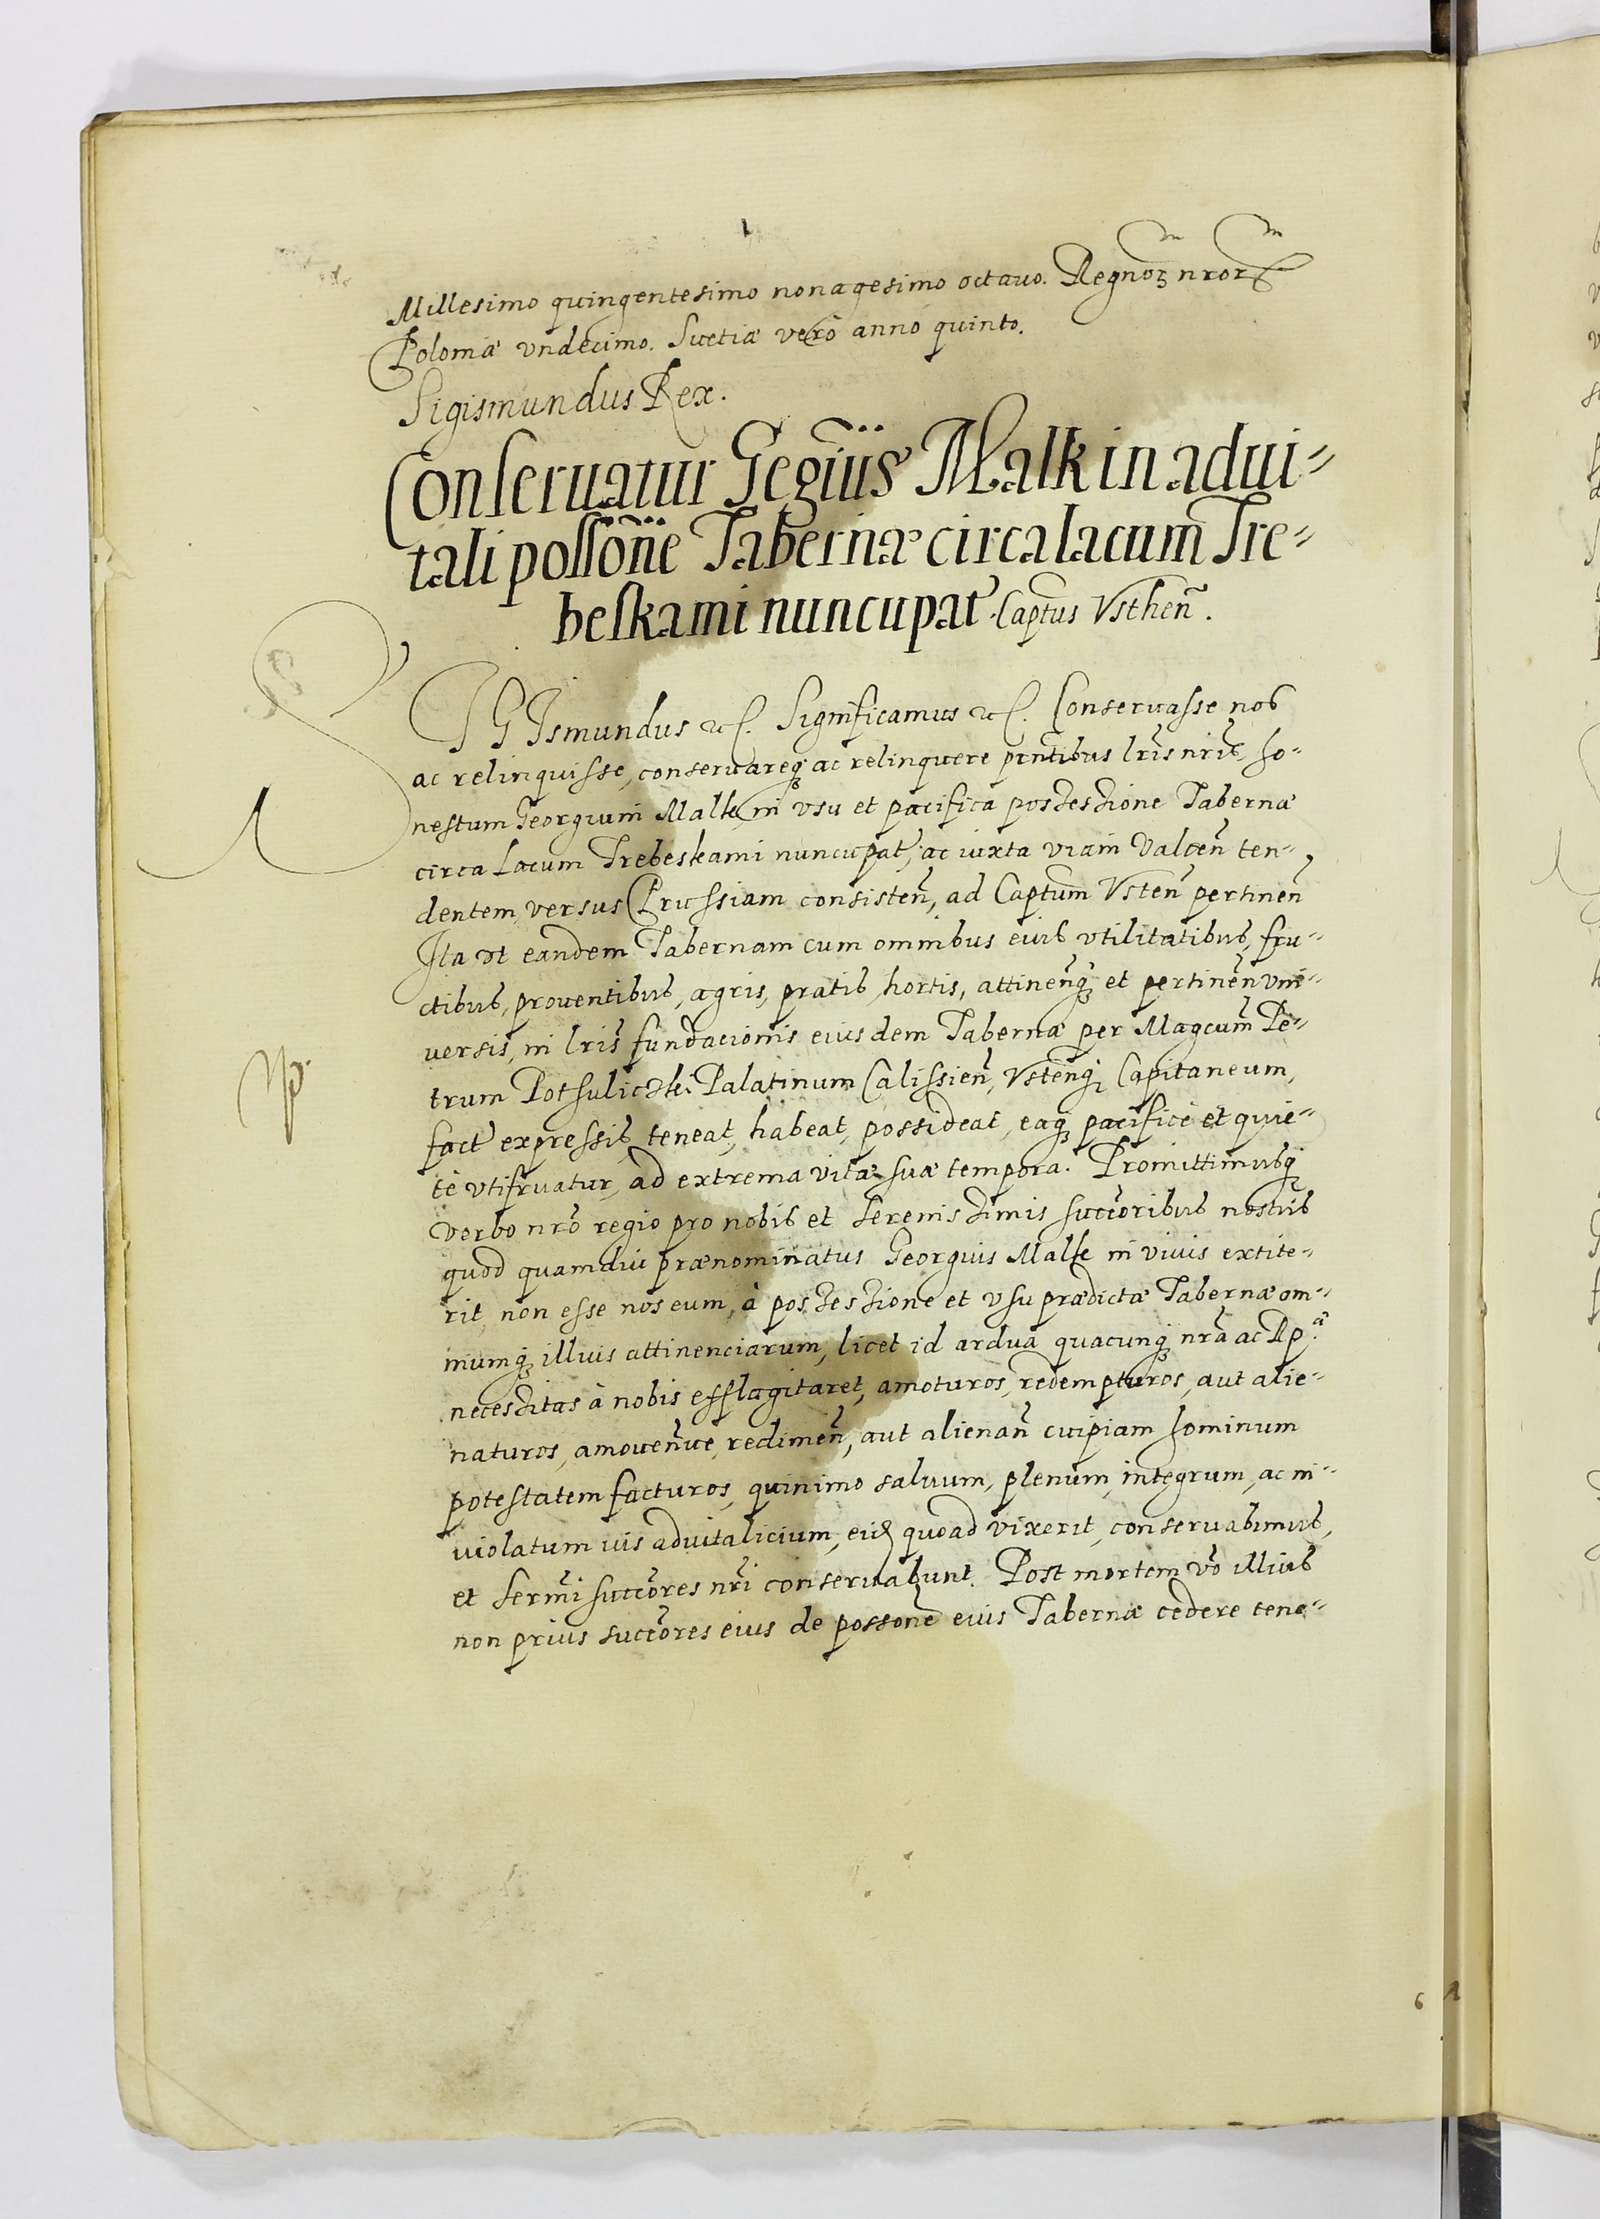 Millesimo quingentesimo nonagesimo octauo. Regnoꝝ nror
Poloniæ vndecimo. Suetiæ verò anno quinto.
Sigismundus Rex.
Conseruatur Gegius̃ Malk in adui=
tali possõne Tabernæ circa lacum Tre=
beskami nuncupat̃. Captus Vsthen̄.
SIGIsmundus etc. Significamus etc. Conseruasse nos
ac relinquisse, conseruareq; ac relinquere pñtibus lris̃ nris̃, ho=
nestum Georgium Malk, in vsu et pacifica possessione Tabernæ
circa Lacum Trebeskami nuncupat̃, ac iuxta viam Valcen̄ ten=
dentem versus Prussiam consisten̄, ad Captum Vsten̄ pertinen̄
Ita vt eandem Tabernam cum omnibus eius vtilitatibus, fru=
ctibus, prouentibus, agris, pratis, hortis, attinen̄q; et pertinen̄ vni=
uersis, in lris̃ fundacionis eiusdem Tabernæ per Magcum̃ Pe=
trum Potsulicski Palatinum Calissien̄, Vsten̄q; Capitaneum,
fact̃ expressis, teneat, habeat, possideat, eaq; pacificè et quie=
tè vtifruatur, ad extrema vitæ suæ tempora. Promittimusq;
verbo nrõ regio pro nobis et Serenissimis succõribus nostris
quod quamdiu prænominatus Georgius Malk in viuis extite=
rit, non esse nos eum, à possessione et vsu prædictæ Tabernæ om=
niumq; illius attinenciarum, licet id ardua quacunq; nrã ac Rp.ᵃ
necessitas à nobis efflagitaret, amoturos, redempturos, aut alie=
naturos, amouen̄ve, redimen̄, aut alienan̄ cuipiam hominum
potestatem facturos, quinimo saluum, plenum, integrum, ac in=
uiolatum ius aduitalicium, eius quoad vixerit, conseruabimus,
et Sermĩ succõres nrĩ conseruabunt. Post mortem vrõ illius
non prius succõres eius de possonẽ eius Tabernæ cedere tene=